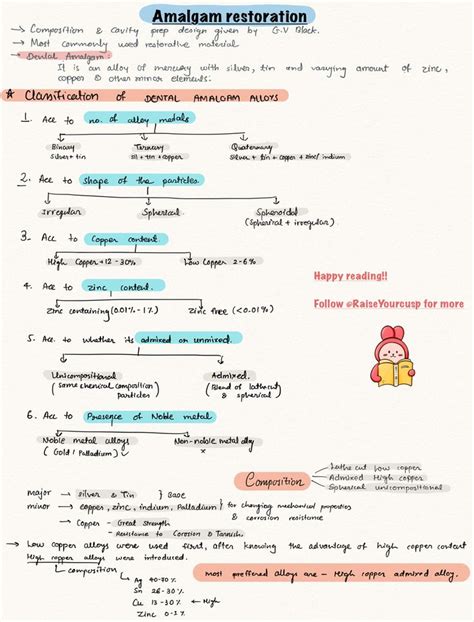 Amalgam restoration
→ Composition & cavity prep design given by G.V Black.
→ Most commonly used restorative material
→ Dental Amalgam :
It is an alloy of mercury with silver, tin and varying amount of zinc,
copper & other minor elements.
★ Classification of DENTAL AMALGAM ALLOYS
1. Acc to no. of alloy metals
Binary Ternary Quaternary
Silver + tin Sil + tin + copper Silver + tin + copper + zinc/ indium
2. Acc to shape of the particles.
Irregular Spherical Spheroidal
(Spherical + irregular)
3. Acc to Copper content.
High Copper → 12-30% Low Copper 2-6%
4. Acc to zinc content.
Zinc containing (0.01% - 1%) Zinc free (<0.01%)
Happy reading!!
Follow @RaiseYourcusp for more
5. Acc to whether its admixed or unmixed.
Unicompositional Admixed.
(Same chemical composition (Blend of lathcut
particles & spherical)
6. Acc to Presence of Noble metal
Noble metal alloys Non-noble metal alloy
(Gold / Palladium)
Composition
Lathe cut Low copper
Admixed High copper
Spherical unicompositional
major → silver & Tin } Base
minor → copper, zinc, indium, Palladium } for changing mechanical properties
& corrosion resistance
→ Copper - Great Strength
- Resistance to Corrosion & Tarnish.
→ Low copper alloys were used first, after knowing the advantage of high copper content
High copper alloys were introduced.
↳ composition
Ag 40-70%
Sn 26-30%
Cu 13-30% ← High
Zinc 0-1%
Most preffered alloys are - High copper admixed alloy.